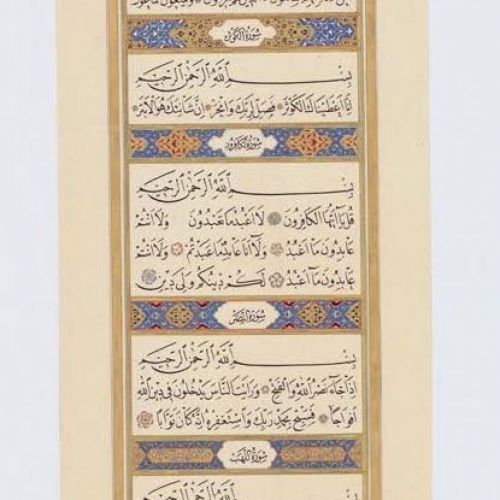 سورة الكوثر
بسم الله الرحمن الرحيم
انا اعطيناك الكوثر فصل لربك وانحر ان شانئك هو الابتر
سورة الكافرون
بسم الله الرحمن الرحيم
قل يا ايها الكافرون لا اعبد ما تعبدون ولا انتم
عابدون ما اعبد ولا انا عابد ما عبدتم ولا انتم
عابدون ما اعبد لكم دينكم ولي دين
سورة النصر
بسم الله الرحمن الرحيم
اذا جاء نصر الله والفتح ورايت الناس يدخلون في دين الله
افواجا فسبح بحمد ربك واستغفره انه كان توابا
سورة اللهب
بسم الله الرحمن الرحيم